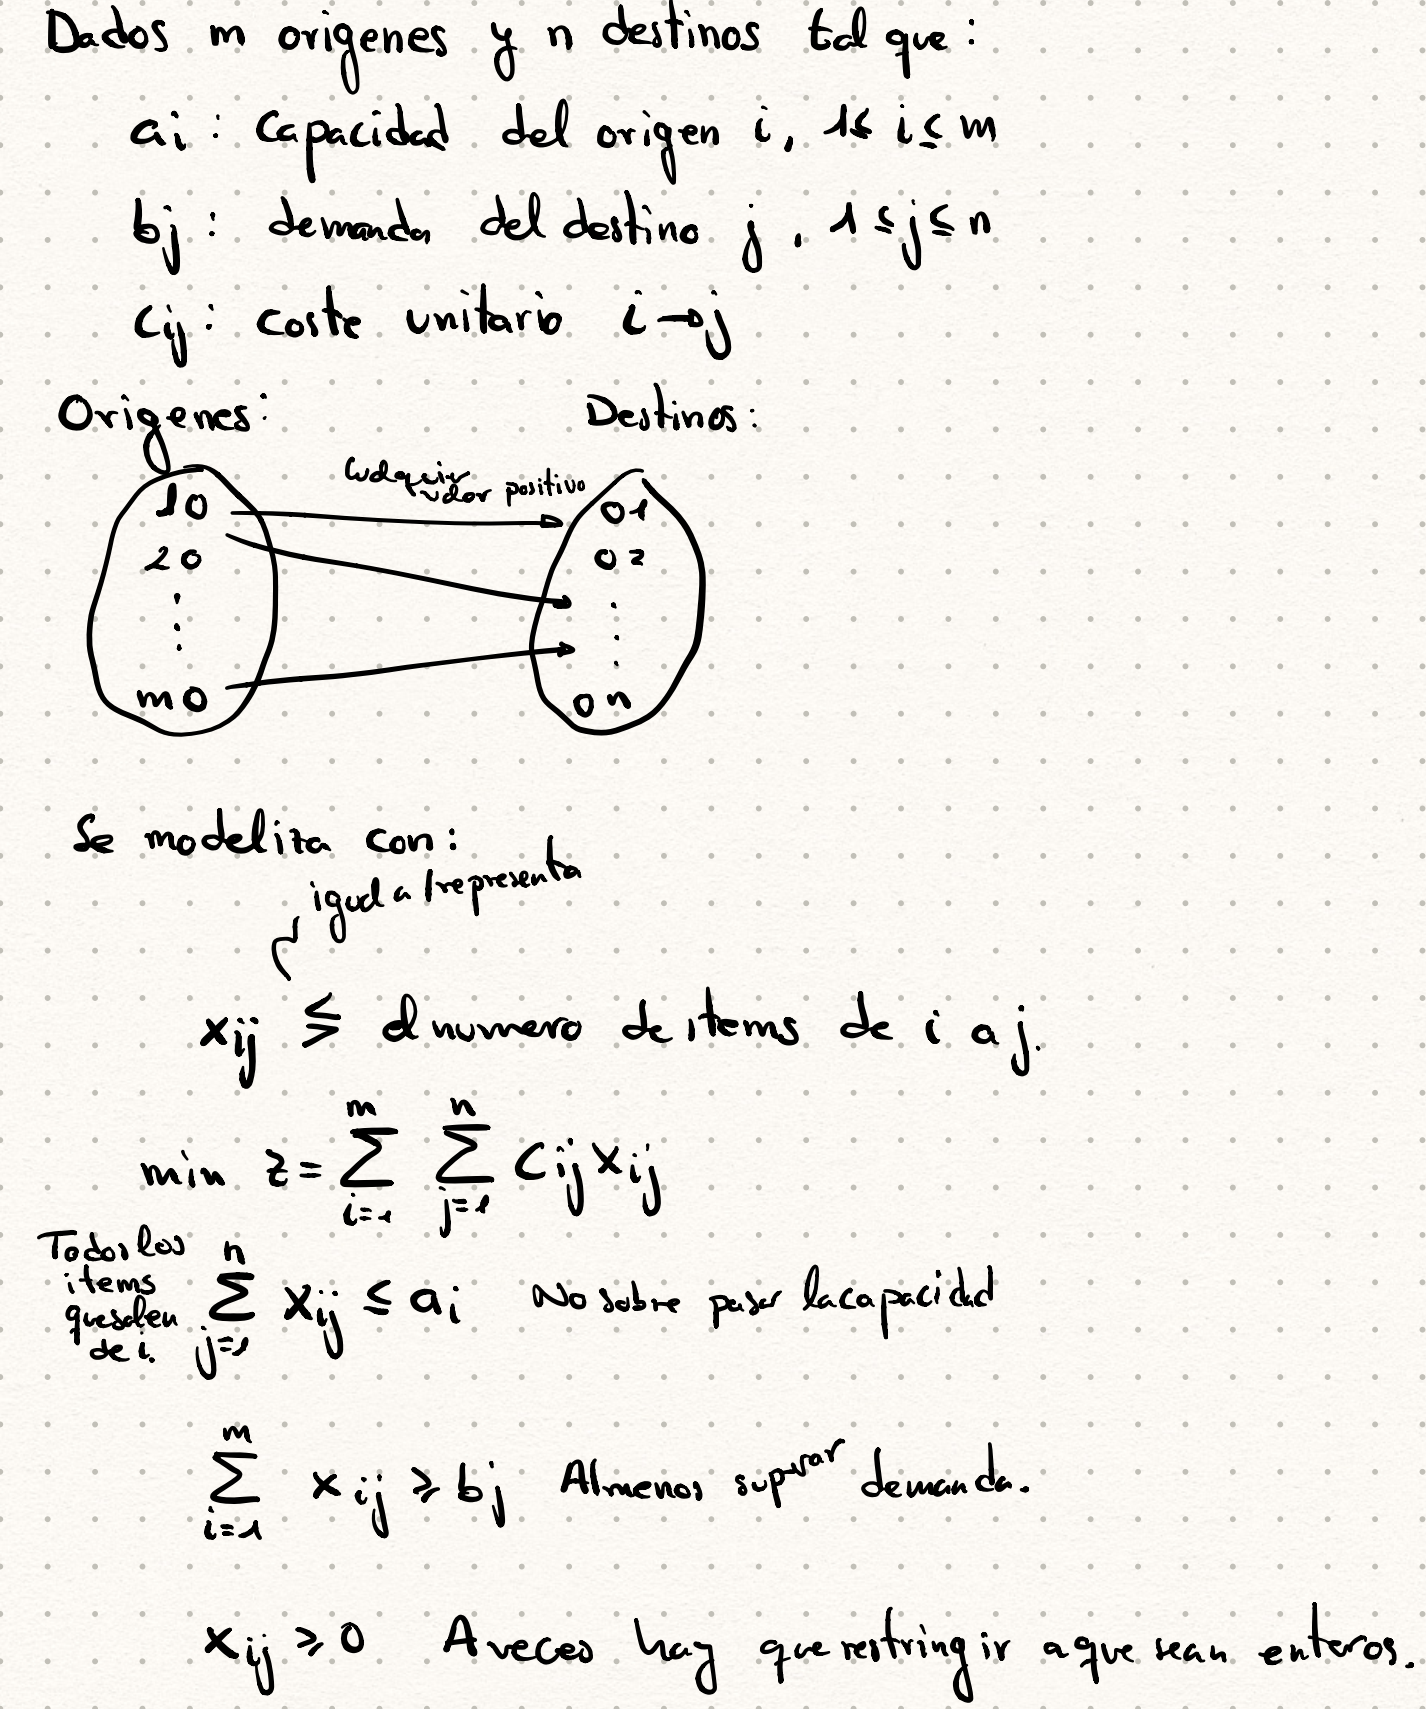 Dados m origenes y n destinos tal que:
ai : Capacidad del origen i, 1≤ i ≤ m
bj : demanda del destino j, 1 ≤ j ≤ n
Cij : coste unitario i → j
Origenes: Destinos:
Cualquier
valor positivo
1 o o 1
2 o o 2
m o o n
Se modeliza con:
igual a / representa
xij ≶ el numero de items de i a j.
m n
min z = Σ Σ Cij xij
i=1 j=1
Todos los
items
que salen
de i.
n
Σ xij ≤ ai No sobre pasar la capacidad
j=1
m
Σ xij ≥ bj Al menos superar demanda.
i=1
xij ≥ 0 A veces hay que restringir a que sean enteros.